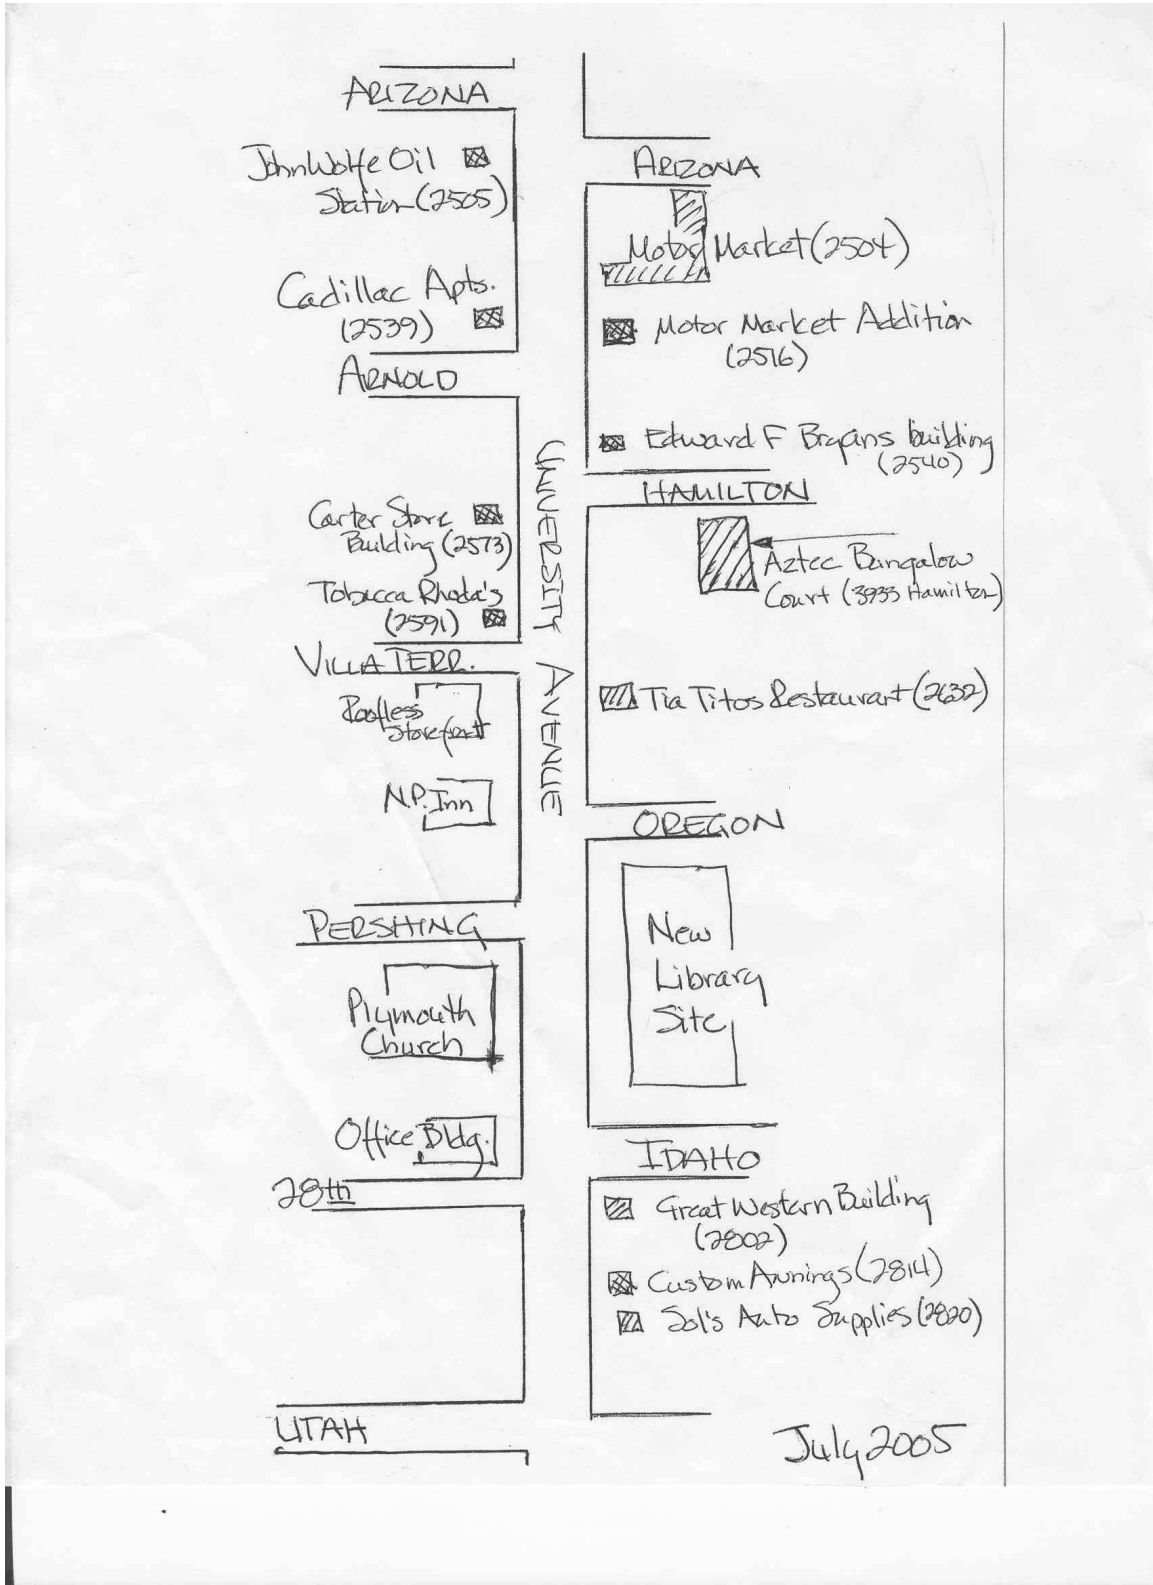 ARIZONA
John Wolfe Oil
Station (2505)
Cadillac Apts.
(2539)
ARNOLD
Carter Store
Building (2573)
Tobacca Rhoda's
(2591)
VILLA TERR.
Roofless
Storefront
N.P. Inn
PERSHING
Plymouth
Church
Office Bldg.
28th
UTAH
UNIVERSITY AVENUE
ARIZONA
Motor Market (2504)
Motor Market Addition
(2516)
Edward F Bryans building
(2540)
HAMILTON
Aztec Bungalow
Court (3933 Hamilton)
Tia Titos Restaurant (2632)
OREGON
New
Library
Site
IDAHO
Great Western Building
(2802)
Custom Awnings (2814)
Sol's Auto Supplies (2820)
July 2005